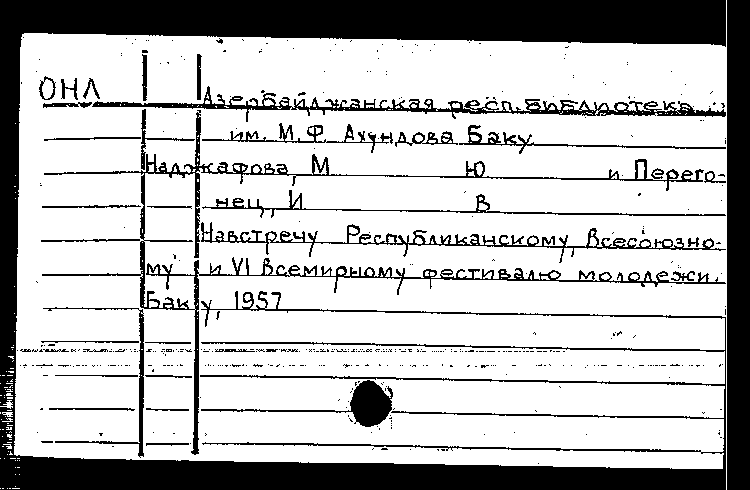 ОНЛ
Азербайджанская респ. библиотека
им. М.Ф. Ахундова Баку
Наджафова, М Ю и Перего-
нец, И В
Навстречу Республиканскому, Всесоюзно-
му и VI Всемирному фестивалю молодежи.
Баку, 1957